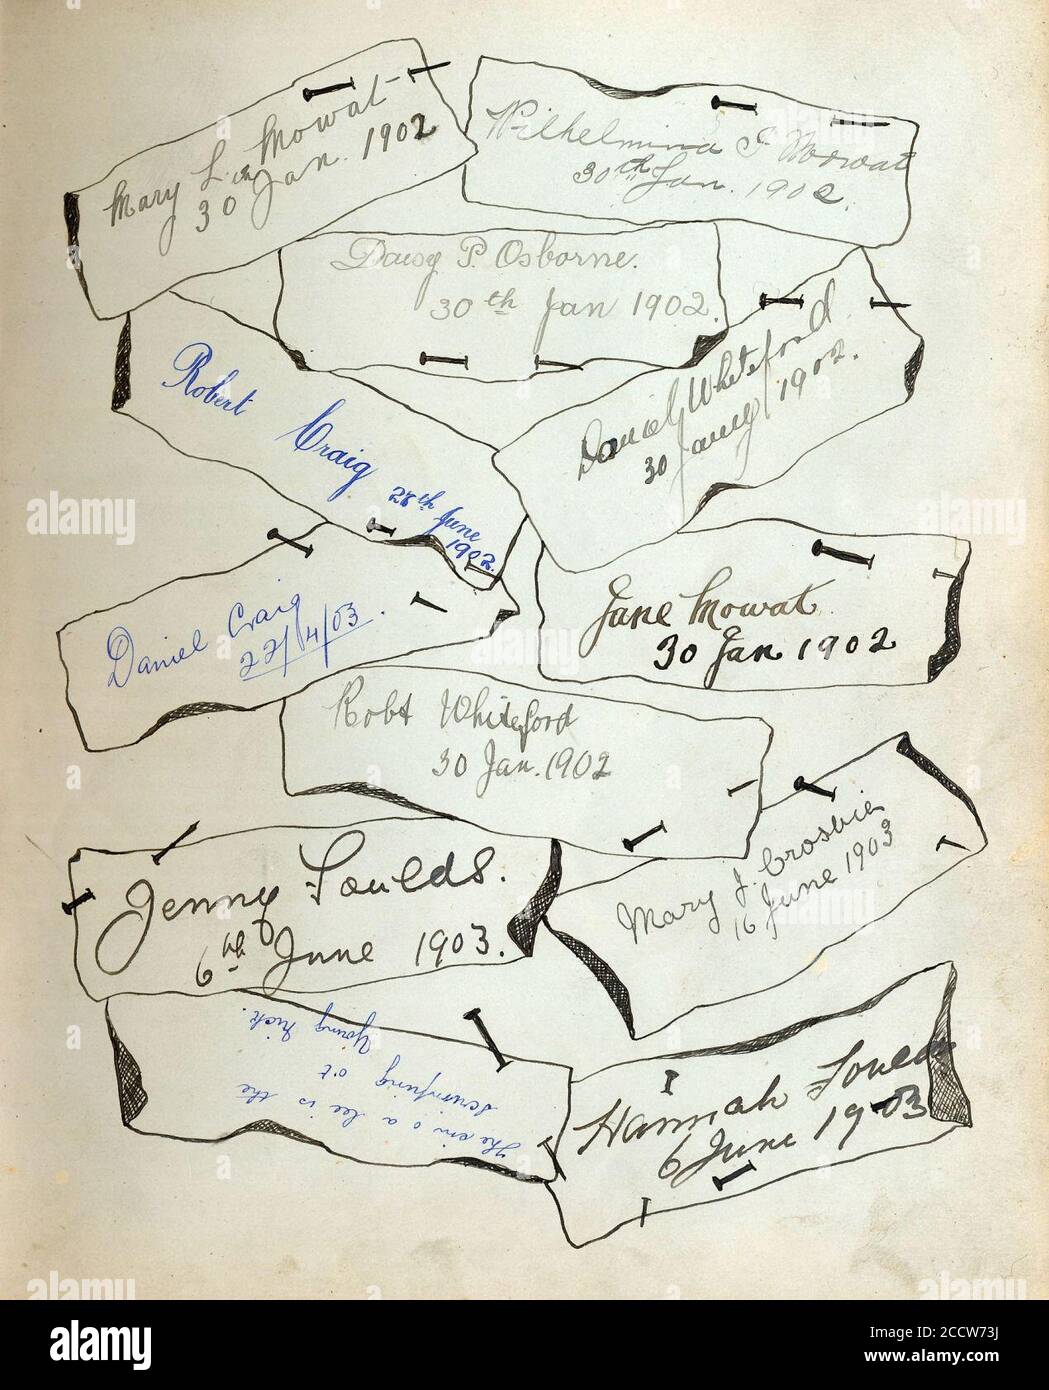 Mary L. Mowat
30 Jan. 1902
Wilhelmina J. Mowat
30th Jan. 1902.
Daisy P. Osborne.
30th Jan 1902.
Robert Craig
28th June
1902.
Daniel Whiteford
30 Jany 1902.
Daniel Craig
22/4/03.
Jane Mowat.
30 Jan 1902
Robt Whiteford
30 Jan. 1902
Jenny Foulds.
6th June 1903.
Mary J. Crosbie
16 June 1903
The em o a lee is the
scrimping ot
Young Nick.
Hannah Foulds
6 June 1903
alamy
Image ID: 2CCW73J
www.alamy.com